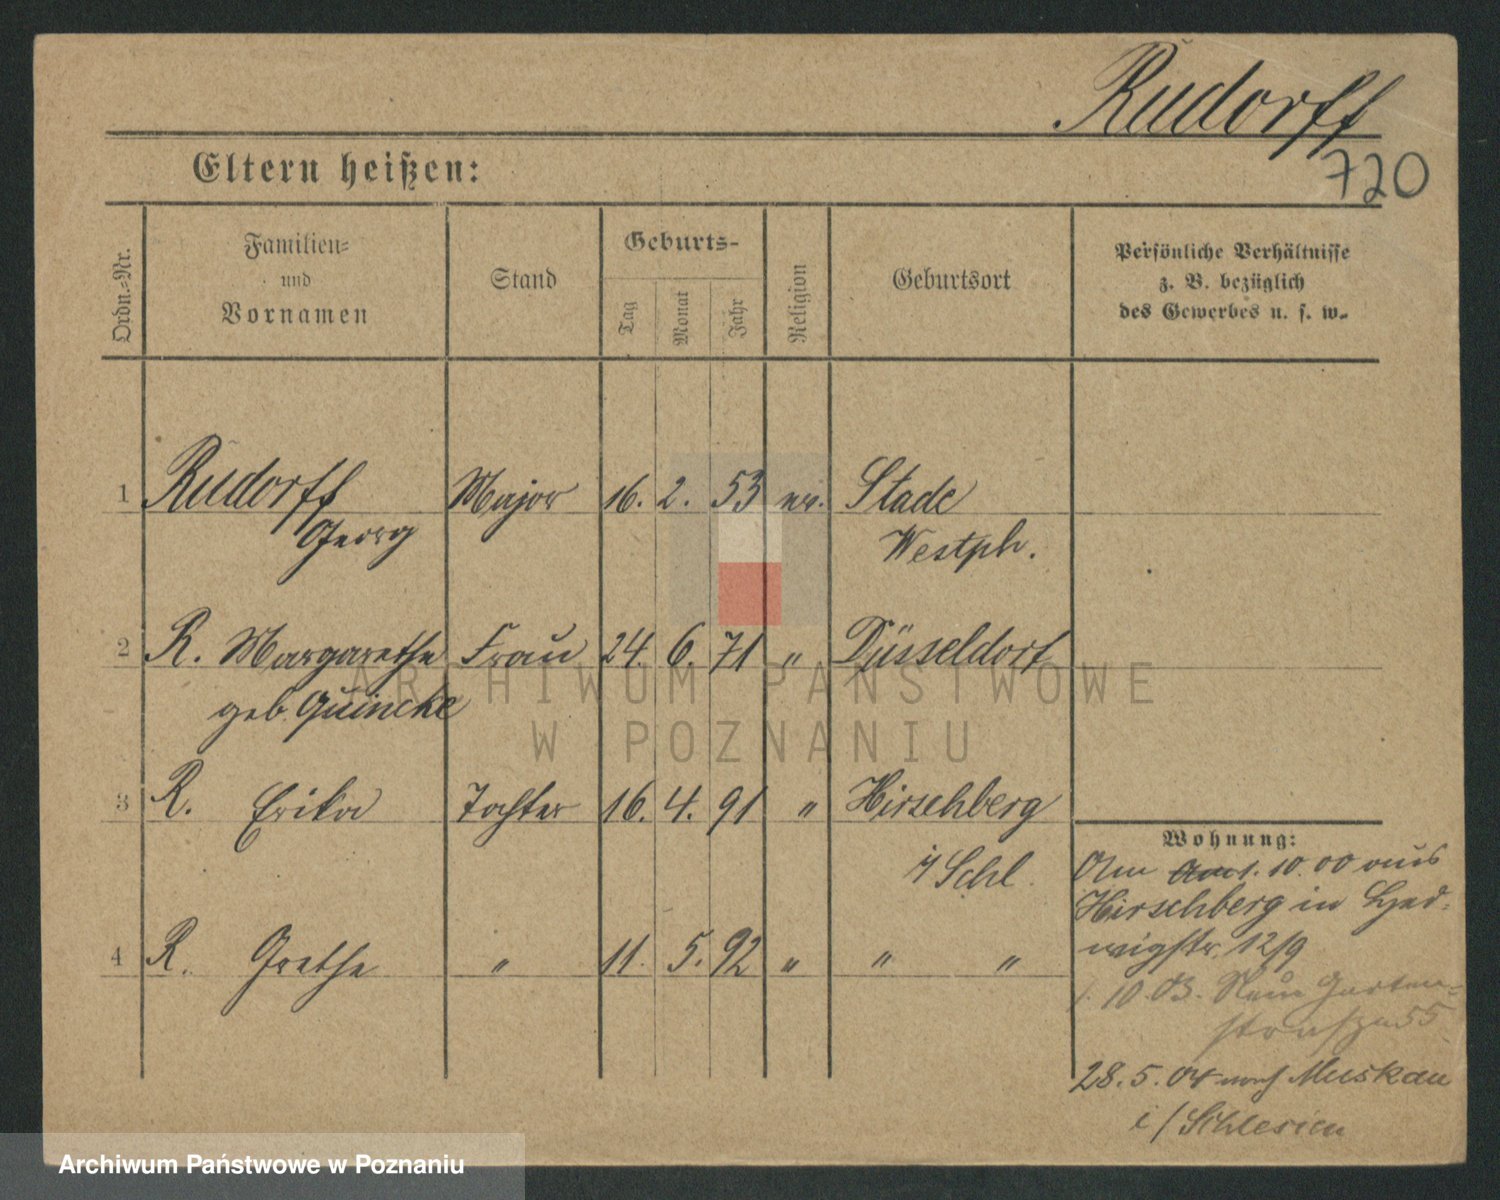 Rudorff
720
Eltern heißen:
Ordn.-Nr.
Familien-
und
Vornamen
Stand
Geburts-
Tag
Monat
Jahr
Religion
Geburtsort
Persönliche Verhältnisse
z. B. bezüglich
des Gewerbes u. s. w.
1 Rudorff Major 16. 2. 53 ev. Stade
Georg Westph.
2 R. Margarethe Frau 24. 6. 71 " Düsseldorf
geb. Quincke
ARCHIWUM PAŃSTWOWE
W POZNANIU
3 R. Erika Tochter 16. 4. 91 " Hirschberg
i/ Schl.
4 R. Grethe " 11. 5. 92 " " "
Wohnung:
Am 1. 10. 00 aus
Hirschberg in Hed-
wigstr. 12/9
1. 10. 03. Neue Garten-
straße 55
28. 5. 04 nach Muskau
i/Schlesien
Archiwum Państwowe w Poznaniu